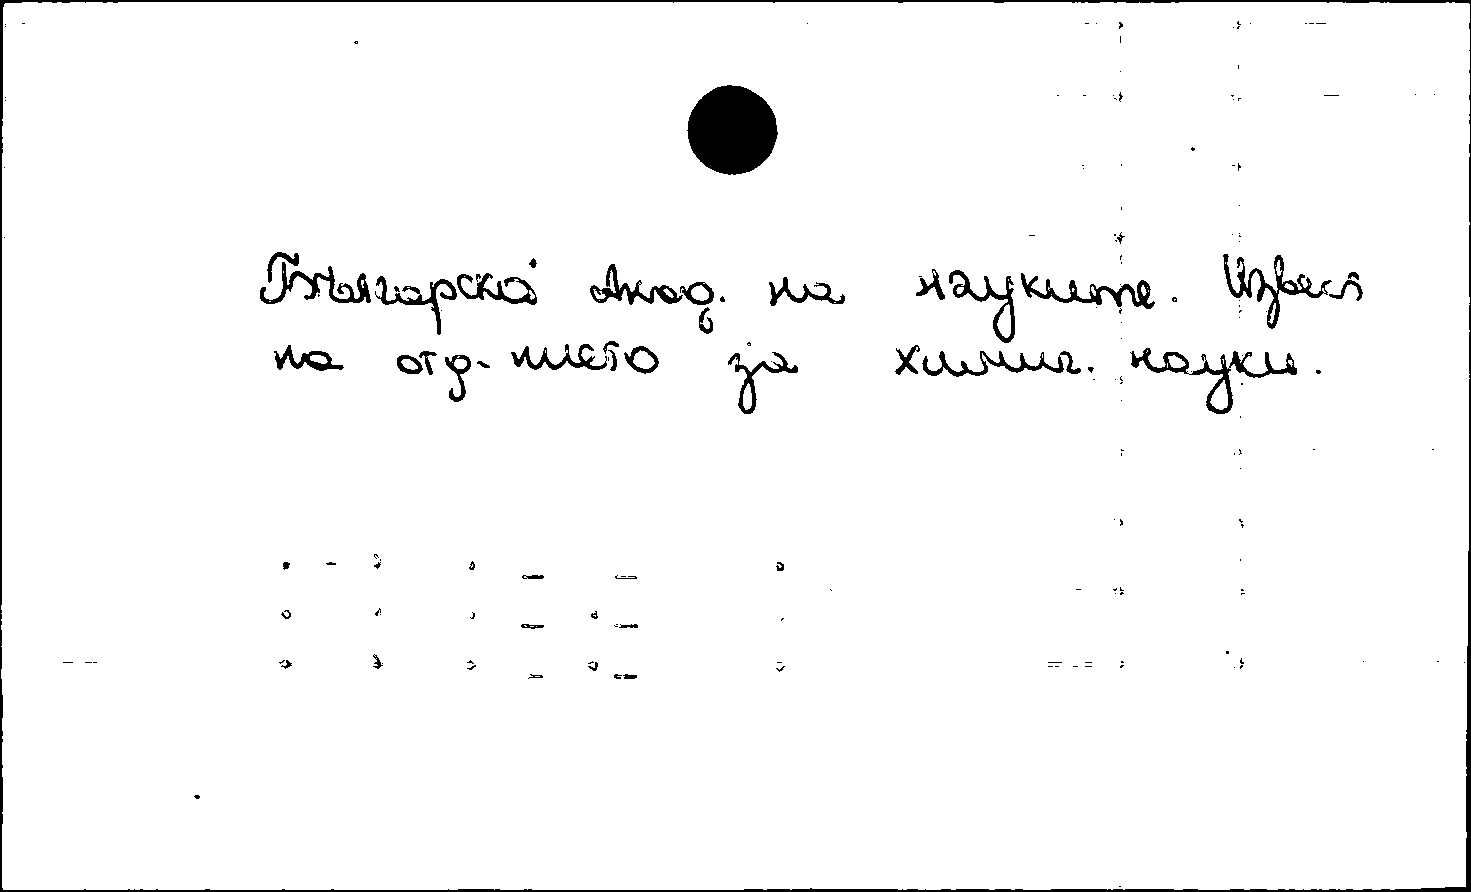 Българска Акад. на науките. Извест
на отд-нието за химич. науки.